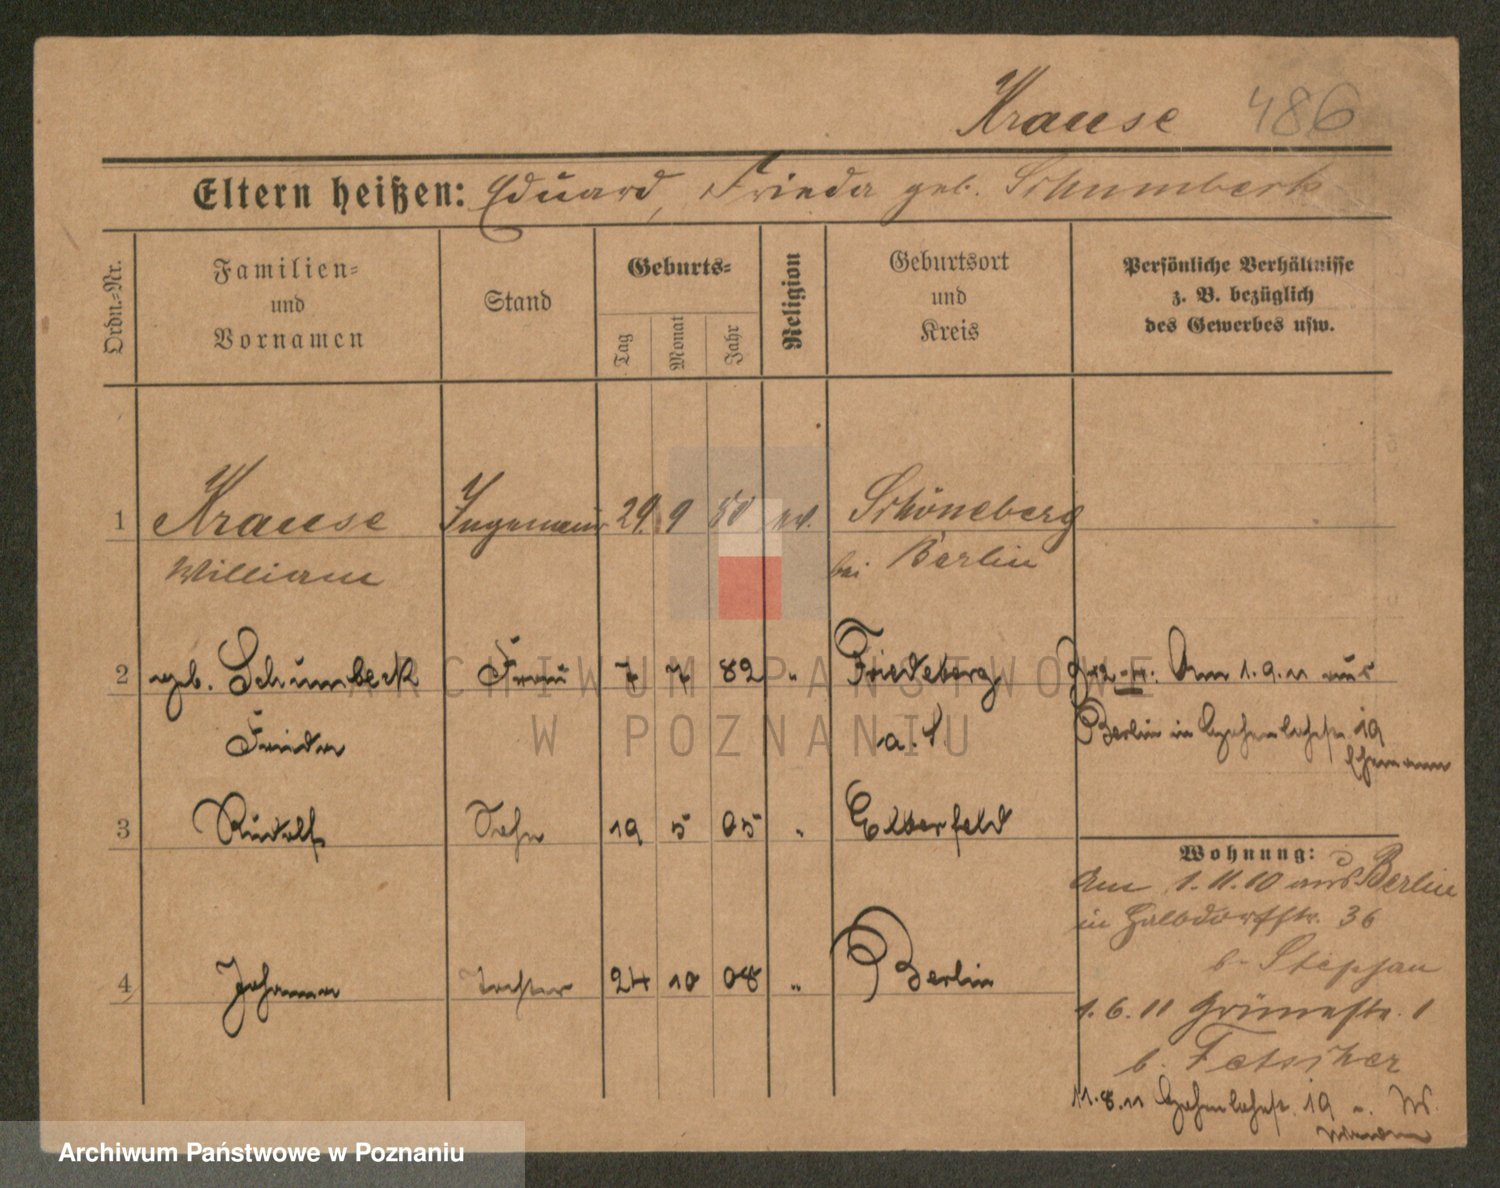 Krause 486
Eltern heißen: Eduard, Frieda geb. Schumbeck
Ordn.-Nr.
Familien-
und
Vornamen
Stand
Geburts-
Tag
Monat
Jahr
Religion
Geburtsort
und
Kreis
Persönliche Verhältnisse
z. B. bezüglich
des Gewerbes usw.
1 Krause Ingenieur 29. 9 80 ev. Schöneberg
William bei Berlin
2 geb. Schumbeck Frau 7 7 82 " Friedeberg Am 1.9.11 aus
Frieda a. Berlin in 19
Ehemann
3 Rudolf Sohn 19 5 05 " Elberfeld
Wohnung:
Am 1.11.10 aus Berlin
in Halbdorfstr. 36
b. Stephan
4 Johanna Tochter 24 10 08 " Berlin
1.6.11 1
b.
11.8.11 19
ARCHIWUM PAŃSTWOWE
W POZNANIU
Archiwum Państwowe w Poznaniu